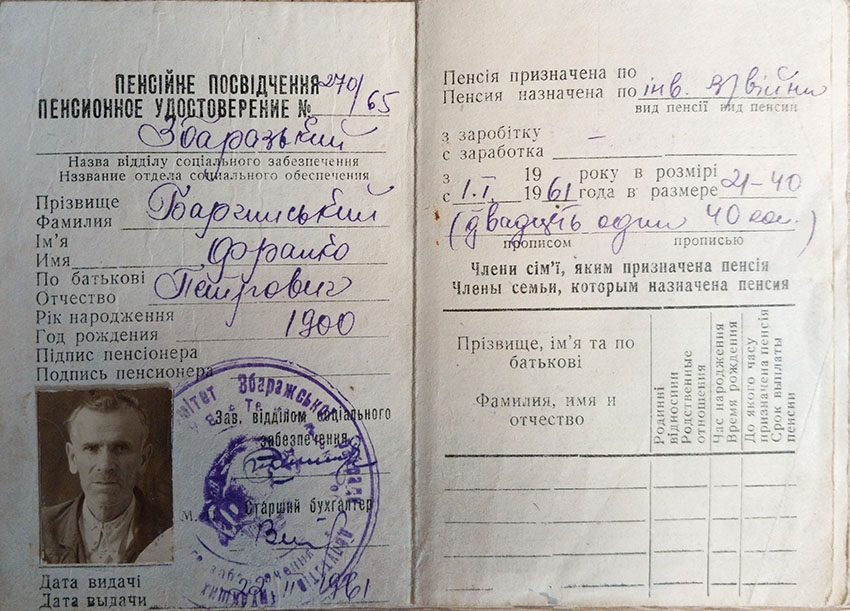 ПЕНСІЙНЕ ПОСВІДЧЕННЯ
ПЕНСИОННОЕ УДОСТОВЕРЕНИЕ № 270/65
Збаразький
Назва відділу соціального забезпечення
Название отдела социального обеспечения
Прізвище
Фамилия
Ім'я
Имя Франко
По батькові
Отчество Петрович
Рік народження
Год рождения 1900
Підпис пенсіонера
Подпись пенсионера
Зав. відділом соціального
забезпечення
Старший бухгалтер
М.
Дата видачі
Дата выдачи 1961
Збаражсько
Пенсія призначена по
Пенсия назначена по інв. війни
вид пенсії вид пенсии
з заробітку
с заработка –
з 19 року в розмірі
с 1.I. 1961 года в размере 21-40
(двадцять один 40 коп.)
прописом прописью
Члени сім'ї, яким призначена пенсія
Члены семьи, которым назначена пенсия
Прізвище, ім'я та по
батькові
Фамилия, имя и
отчество
Родинні
відносини
Родственные
отношения
Час народження
Время рождения
До якого часу
призначена пенсія
Срок выплаты
пенсии